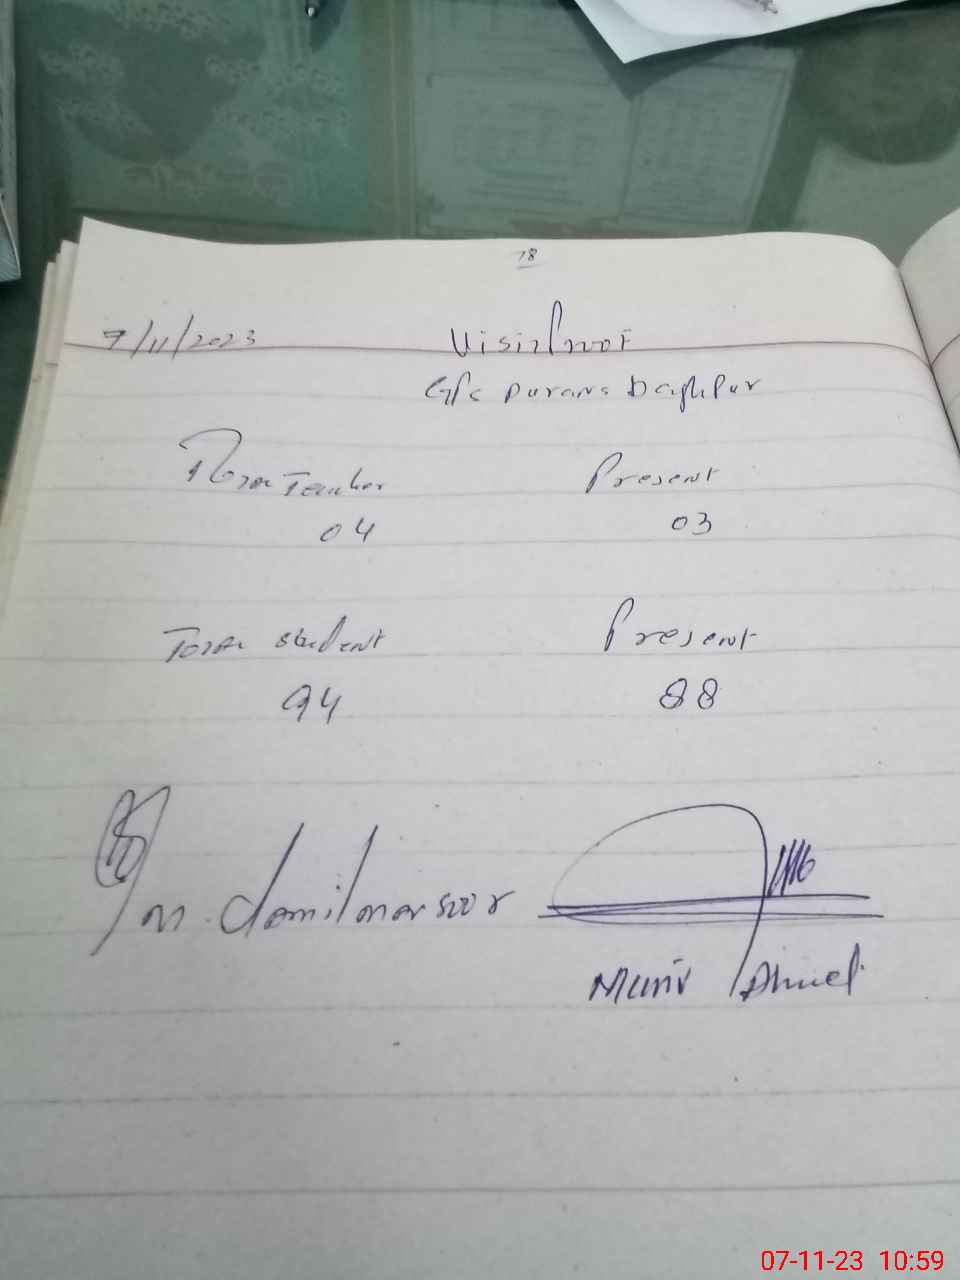 78
7/11/2023 Visit Proof
G/s Purans Daghpur
Total Teacher Present
04 03
Total Student Present
94 88
M. Jamil mansoor
Munir Ahmed
07-11-23 10:59